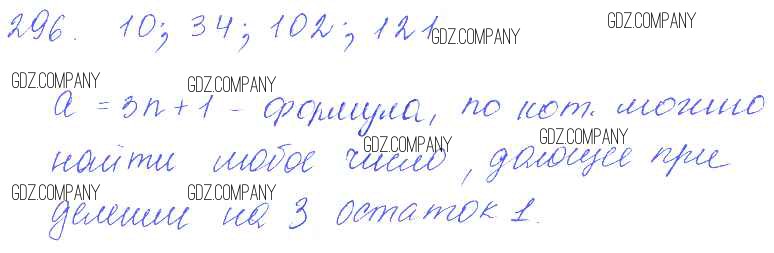 296. 10; 34; 102; 121
GDZ.COMPANY GDZ.COMPANY
GDZ.COMPANY GDZ.COMPANY
a = 3n + 1 - формула, по кот. можно
GDZ.COMPANY GDZ.COMPANY
найти любое число, дающее при
GDZ.COMPANY GDZ.COMPANY
делении на 3 остаток 1.